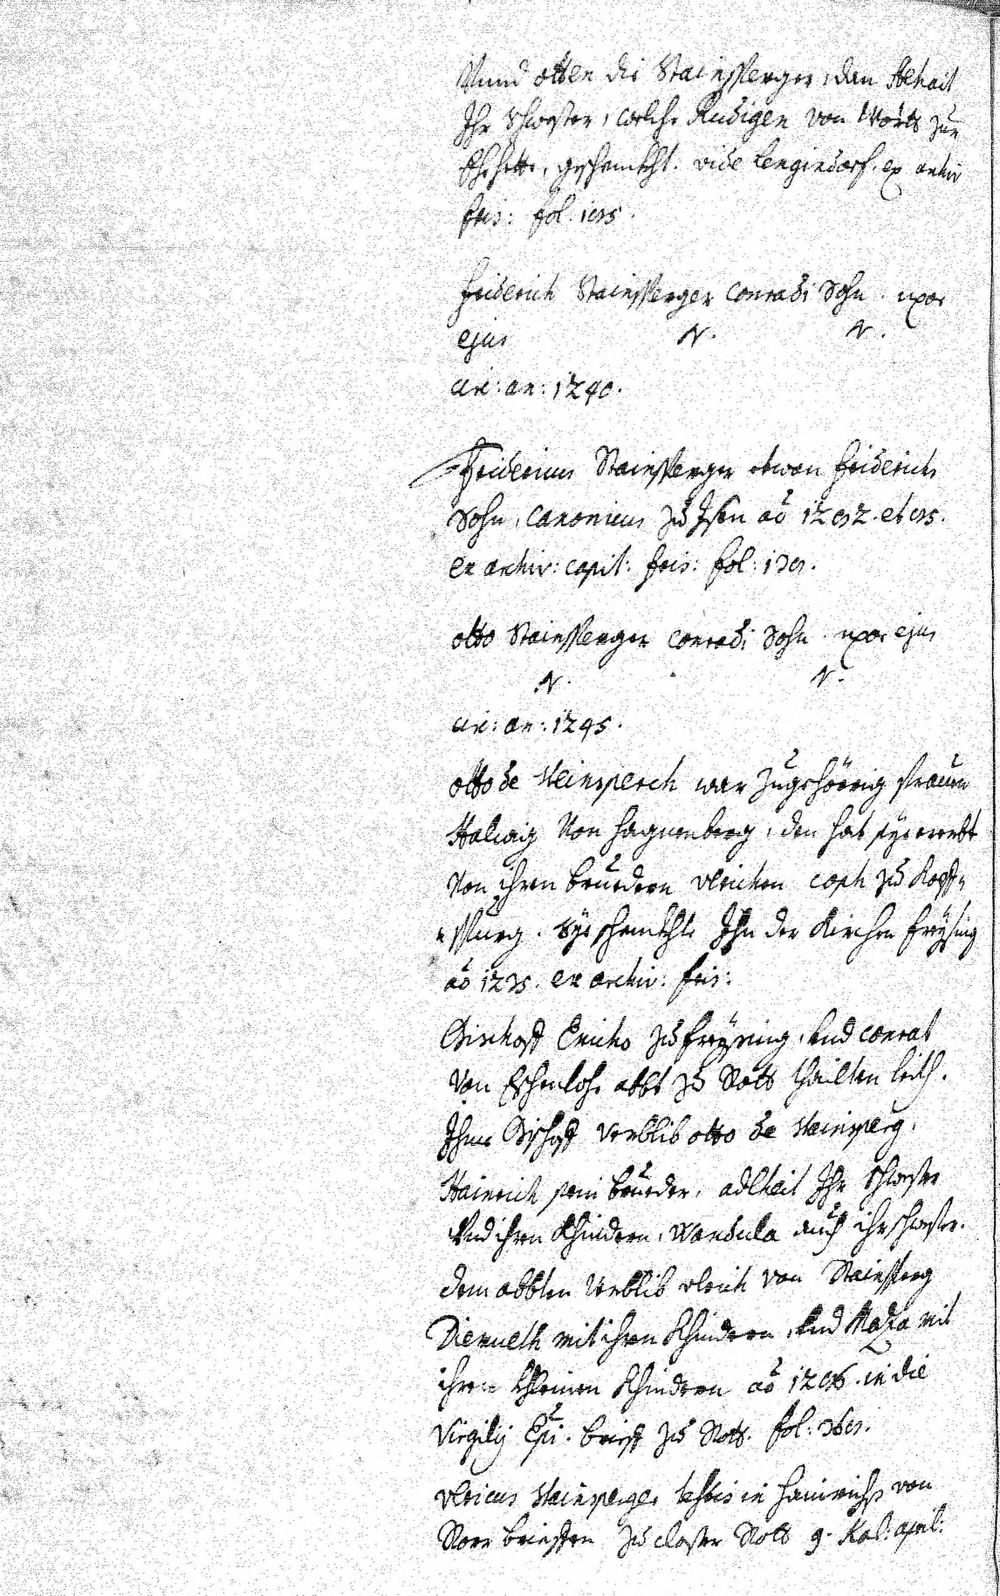 Vnnd otten die Stainsperger, den Athait
Ihr Schwester, welche Rudigen von Wörts zur
Ehe hette, geschenckht. vide Lengindorf. ex archiv
fris: fol.
Friderich Stainsperger Conradi Sohn. uxor
ejus N. N.
circ: an: 1290.
Fridericus Stainsperger etwan Friderichs
Sohn, Canonicus zů Isen aō
ex archiv: capit: fris: fol:
otto Stainsperger Conradi Sohn. uxor ejus
N. N.
circ: an: 1295.
otto de Steinsperch war zugehörrig frauen
Halwig Von Hagnenberg, den hat sye ererbt
Von ihren bruedern Vlrichen
spurg. Sye schenckht Ihn der Kirchen Freÿsing
aō ex archiv: fris:
Bischoff Emicho zů Freÿsing, vnd Conrat
Von Eschenlohe abbt zů Rott thailten leith.
Ihme Bischoff verblib otto de Steinsperg,
Hainrich sein brueder, adlheit Ihr Schwester
Vnd ihren Khindern, Wandula auch ihr schwester.
dem abbten Verblib vlrich von Stainsperg
Diemueth mit ihren Khindern, vnd Maza mit
ihren khleinen Khindern aō in die
Virgilij Epi. brieff zů Rott. fol:
vlricus Stainsperger testis in Hainrichs von
Rorr brieffen zu closter Rott 9. Kal: april: